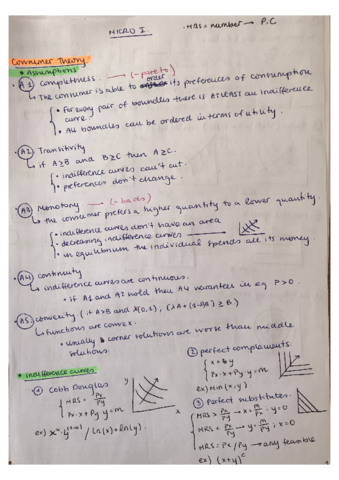 MICRO I
MRS = number → P.C
Consumer Theory
* Assumptions
A1 Completness → (-pareto)
↳ The consumer is able to order its preferences of consumption
• For every pair of boundles there is ATLEAST an indifference
curve.
• All boundles can be ordered in terms of utility.
A2 Transitivity
↳ if A≥B and B≥C then A≥C.
• indifference curves can't cut.
• preferences don't change.
A3 Monotony → (-bads)
↳ the consumer prefers a higher quantity to a lower quantity.
• indifference curves don't have an area
• decreasing indifference curves
• in equilibrium the individual spends all its money
A4 continuity
↳ indifference curves are continuous.
• if A1 and A2 hold then A4 warantees in eq P>0.
A5 convexity (if A>B and λ(0,1), (λA+(1-λ)B) ≥ B.)
↳ functions are convex.
• usually corner solutions are worse than middle
solutions.
* Indifference curves
① Cobb Douglas
MRS = Px/Py
Px·x+Py·y=m
y
x
② perfect complements
Px·x+Py·y=m
ex) min(x,y)
③ Perfect substitutes.
MRS > Px/Py → x = m/Px ; y=0
MRS < Px/Py → y = m/Py ; x=0
MRS = Px/Py → any feasible